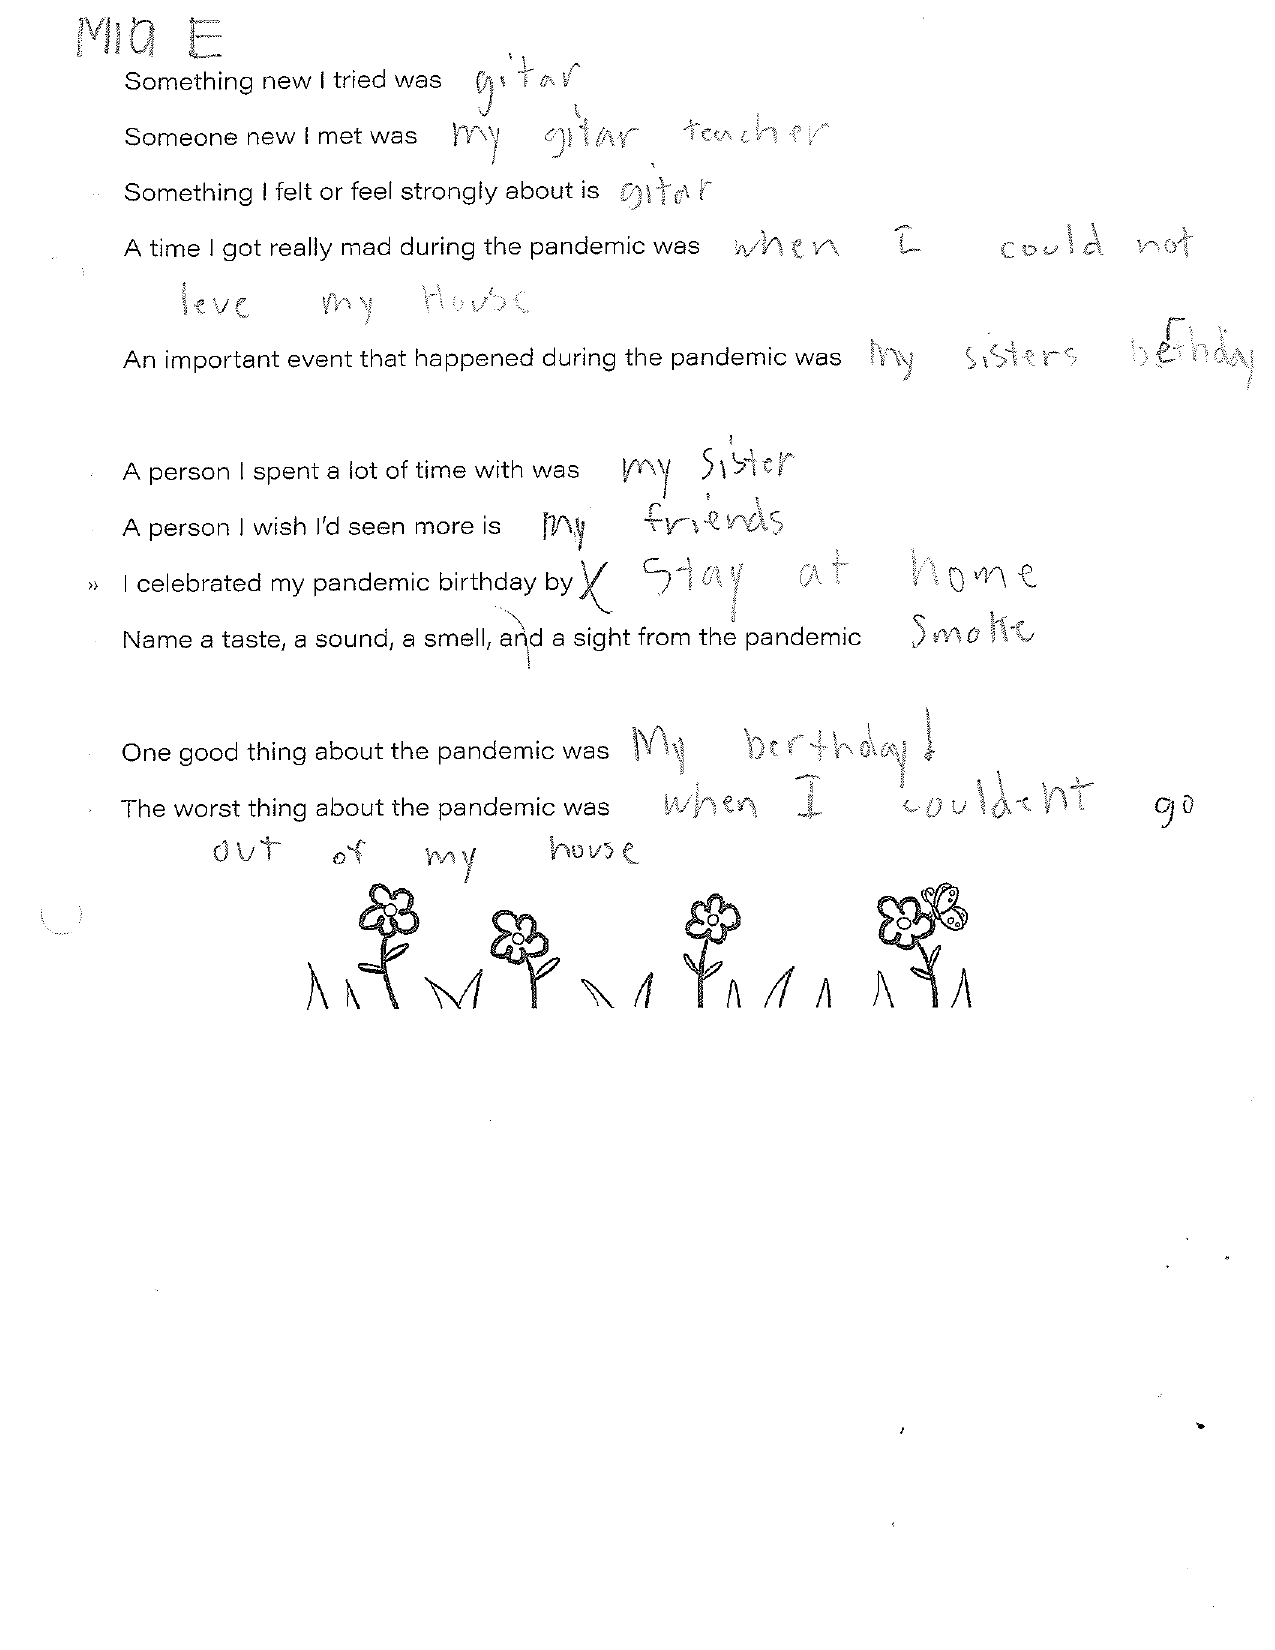 MIa E
Something new I tried was gitar
Someone new I met was my gitar teacher
Something I felt or feel strongly about is gitar
A time I got really mad during the pandemic was when I could not
leve my House
An important event that happened during the pandemic was my sisters berthday
A person I spent a lot of time with was my Sister
A person I wish I'd seen more is my friends
» I celebrated my pandemic birthday by Stay at home
Name a taste, a sound, a smell, and a sight from the pandemic Smoke
One good thing about the pandemic was My berthday!
The worst thing about the pandemic was when I couldent go
out of my house